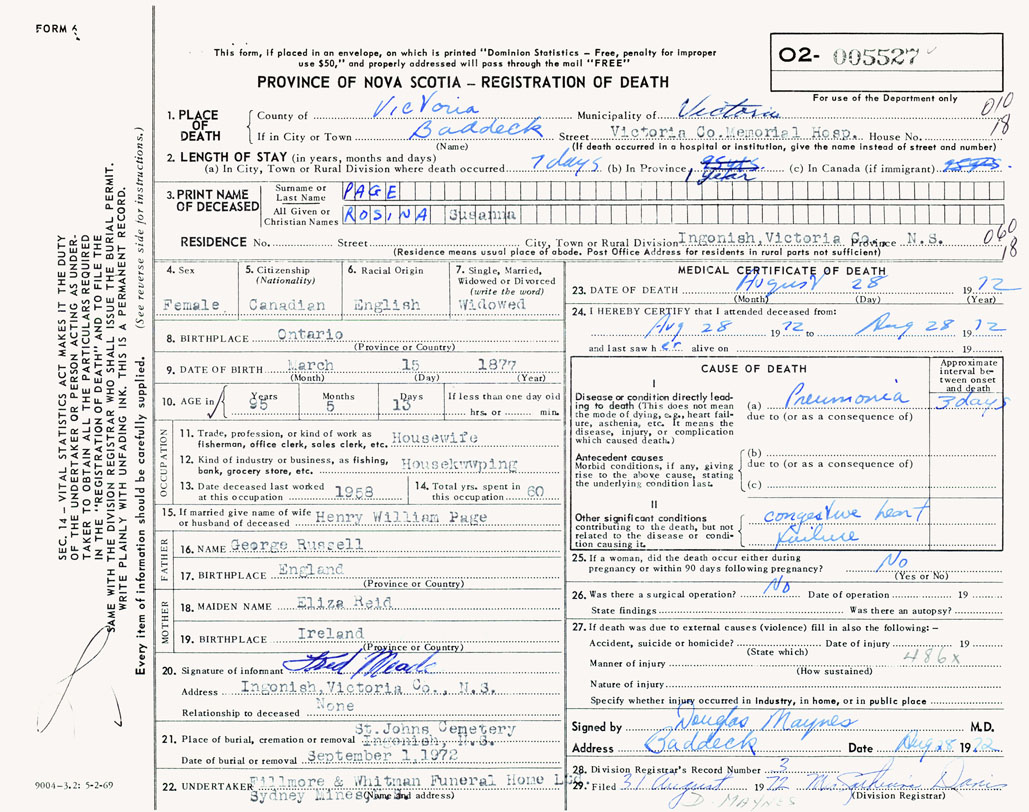 FORM
This form, if placed in an envelope, on which is printed "Dominion Statistics – Free, penalty for improper
use $50," and properly addressed will pass through the mail "FREE"
PROVINCE OF NOVA SCOTIA – REGISTRATION OF DEATH
02- 005527
For use of the Department only
010
18
1. PLACE OF DEATH
County of Victoria Municipality of Victoria
If in City or Town Baddeck Street Victoria Co.Memorial Hosp. House No.
(Name) (If death occurred in a hospital or institution, give the name instead of street and number)
2. LENGTH OF STAY (in years, months and days)
(a) In City, Town or Rural Division where death occurred 7 days (b) In Province 1 year (c) In Canada (if immigrant)
3. PRINT NAME OF DECEASED
Surname or Last Name PAGE
All Given or Christian Names ROSINA Susanna
RESIDENCE No. Street City, Town or Rural Division Ingonish,Victoria Co. Province N.S.
(Residence means usual place of abode. Post Office Address for residents in rural parts not sufficient)
060
18
4. Sex
Female
5. Citizenship
(Nationality)
Canadian
6. Racial Origin
English
7. Single, Married,
Widowed or Divorced
(write the word)
Widowed
8. BIRTHPLACE Ontario
(Province or Country)
9. DATE OF BIRTH March 15 1877
(Month) (Day) (Year)
10. AGE in Years Months Days If less than one day old
95 5 13 hrs. or min.
OCCUPATION
11. Trade, profession, or kind of work as
fisherman, office clerk, sales clerk, etc. Housewife
12. Kind of industry or business, as fishing,
bank, grocery store, etc. Housekwwping
13. Date deceased last worked
at this occupation 1958
14. Total yrs. spent in
this occupation 60
15. If married give name of wife
or husband of deceased Henry William Page
FATHER
16. NAME George Russell
17. BIRTHPLACE England
(Province or Country)
MOTHER
18. MAIDEN NAME Eliza Reid
19. BIRTHPLACE Ireland
(Province or Country)
20. Signature of informant Fred Meade
Address Ingonish,Victoria Co., N.S.
Relationship to deceased None
21. Place of burial, cremation or removal St.Johns Cemetery
Ingonish, N.S.
Date of burial or removal September 1,1972
22. UNDERTAKER Fillmore & Whitman Funeral Home Ltd
Sydney Mines
(Name and address)
MEDICAL CERTIFICATE OF DEATH
23. DATE OF DEATH August 28 1972
(Month) (Day) (Year)
24. I HEREBY CERTIFY that I attended deceased from:
Aug 28 1972 to Aug 28 1972
and last saw her alive on 19
CAUSE OF DEATH
Approximate
interval be-
tween onset
and death
I
Disease or condition directly lead-
ing to death (This does not mean
the mode of dying, e.g., heart fail-
ure, asthenia, etc. It means the
disease, injury, or complication
which caused death.)
(a) Pneumonia 3 days
due to (or as a consequence of)
Antecedent causes
Morbid conditions, if any, giving
rise to the above cause, stating
the underlying condition last.
(b)
due to (or as a consequence of)
(c)
II
Other significant conditions
contributing to the death, but not
related to the disease or condi-
tion causing it.
congestive heart
failure
25. If a woman, did the death occur either during
pregnancy or within 90 days following pregnancy? No
(Yes or No)
26. Was there a surgical operation? No Date of operation 19
State findings Was there an autopsy?
27. If death was due to external causes (violence) fill in also the following: –
Accident, suicide or homicide? Date of injury 19
(State which)
486x
Manner of injury
(How sustained)
Nature of injury
Specify whether injury occurred in Industry, in home, or in public place
Signed by Douglas Maynes M.D.
Address Baddeck Date Aug 28 1972
28. Division Registrar's Record Number 3
29. Filed 31 August 1972
(Division Registrar)
D. MAYNES
SEC. 14 – VITAL STATISTICS ACT MAKES IT THE DUTY
OF THE UNDERTAKER OR PERSON ACTING AS UNDER-
TAKER TO OBTAIN ALL THE PARTICULARS REQUIRED
IN THE "REGISTRATION OF DEATH" AND TO FILE THE
SAME WITH THE DIVISION REGISTRAR WHO SHALL ISSUE THE BURIAL PERMIT.
WRITE PLAINLY WITH UNFADING INK. THIS IS A PERMANENT RECORD.
Every item of information should be carefully supplied. (See reverse side for instructions.)
9004–3.2: 5-2-69